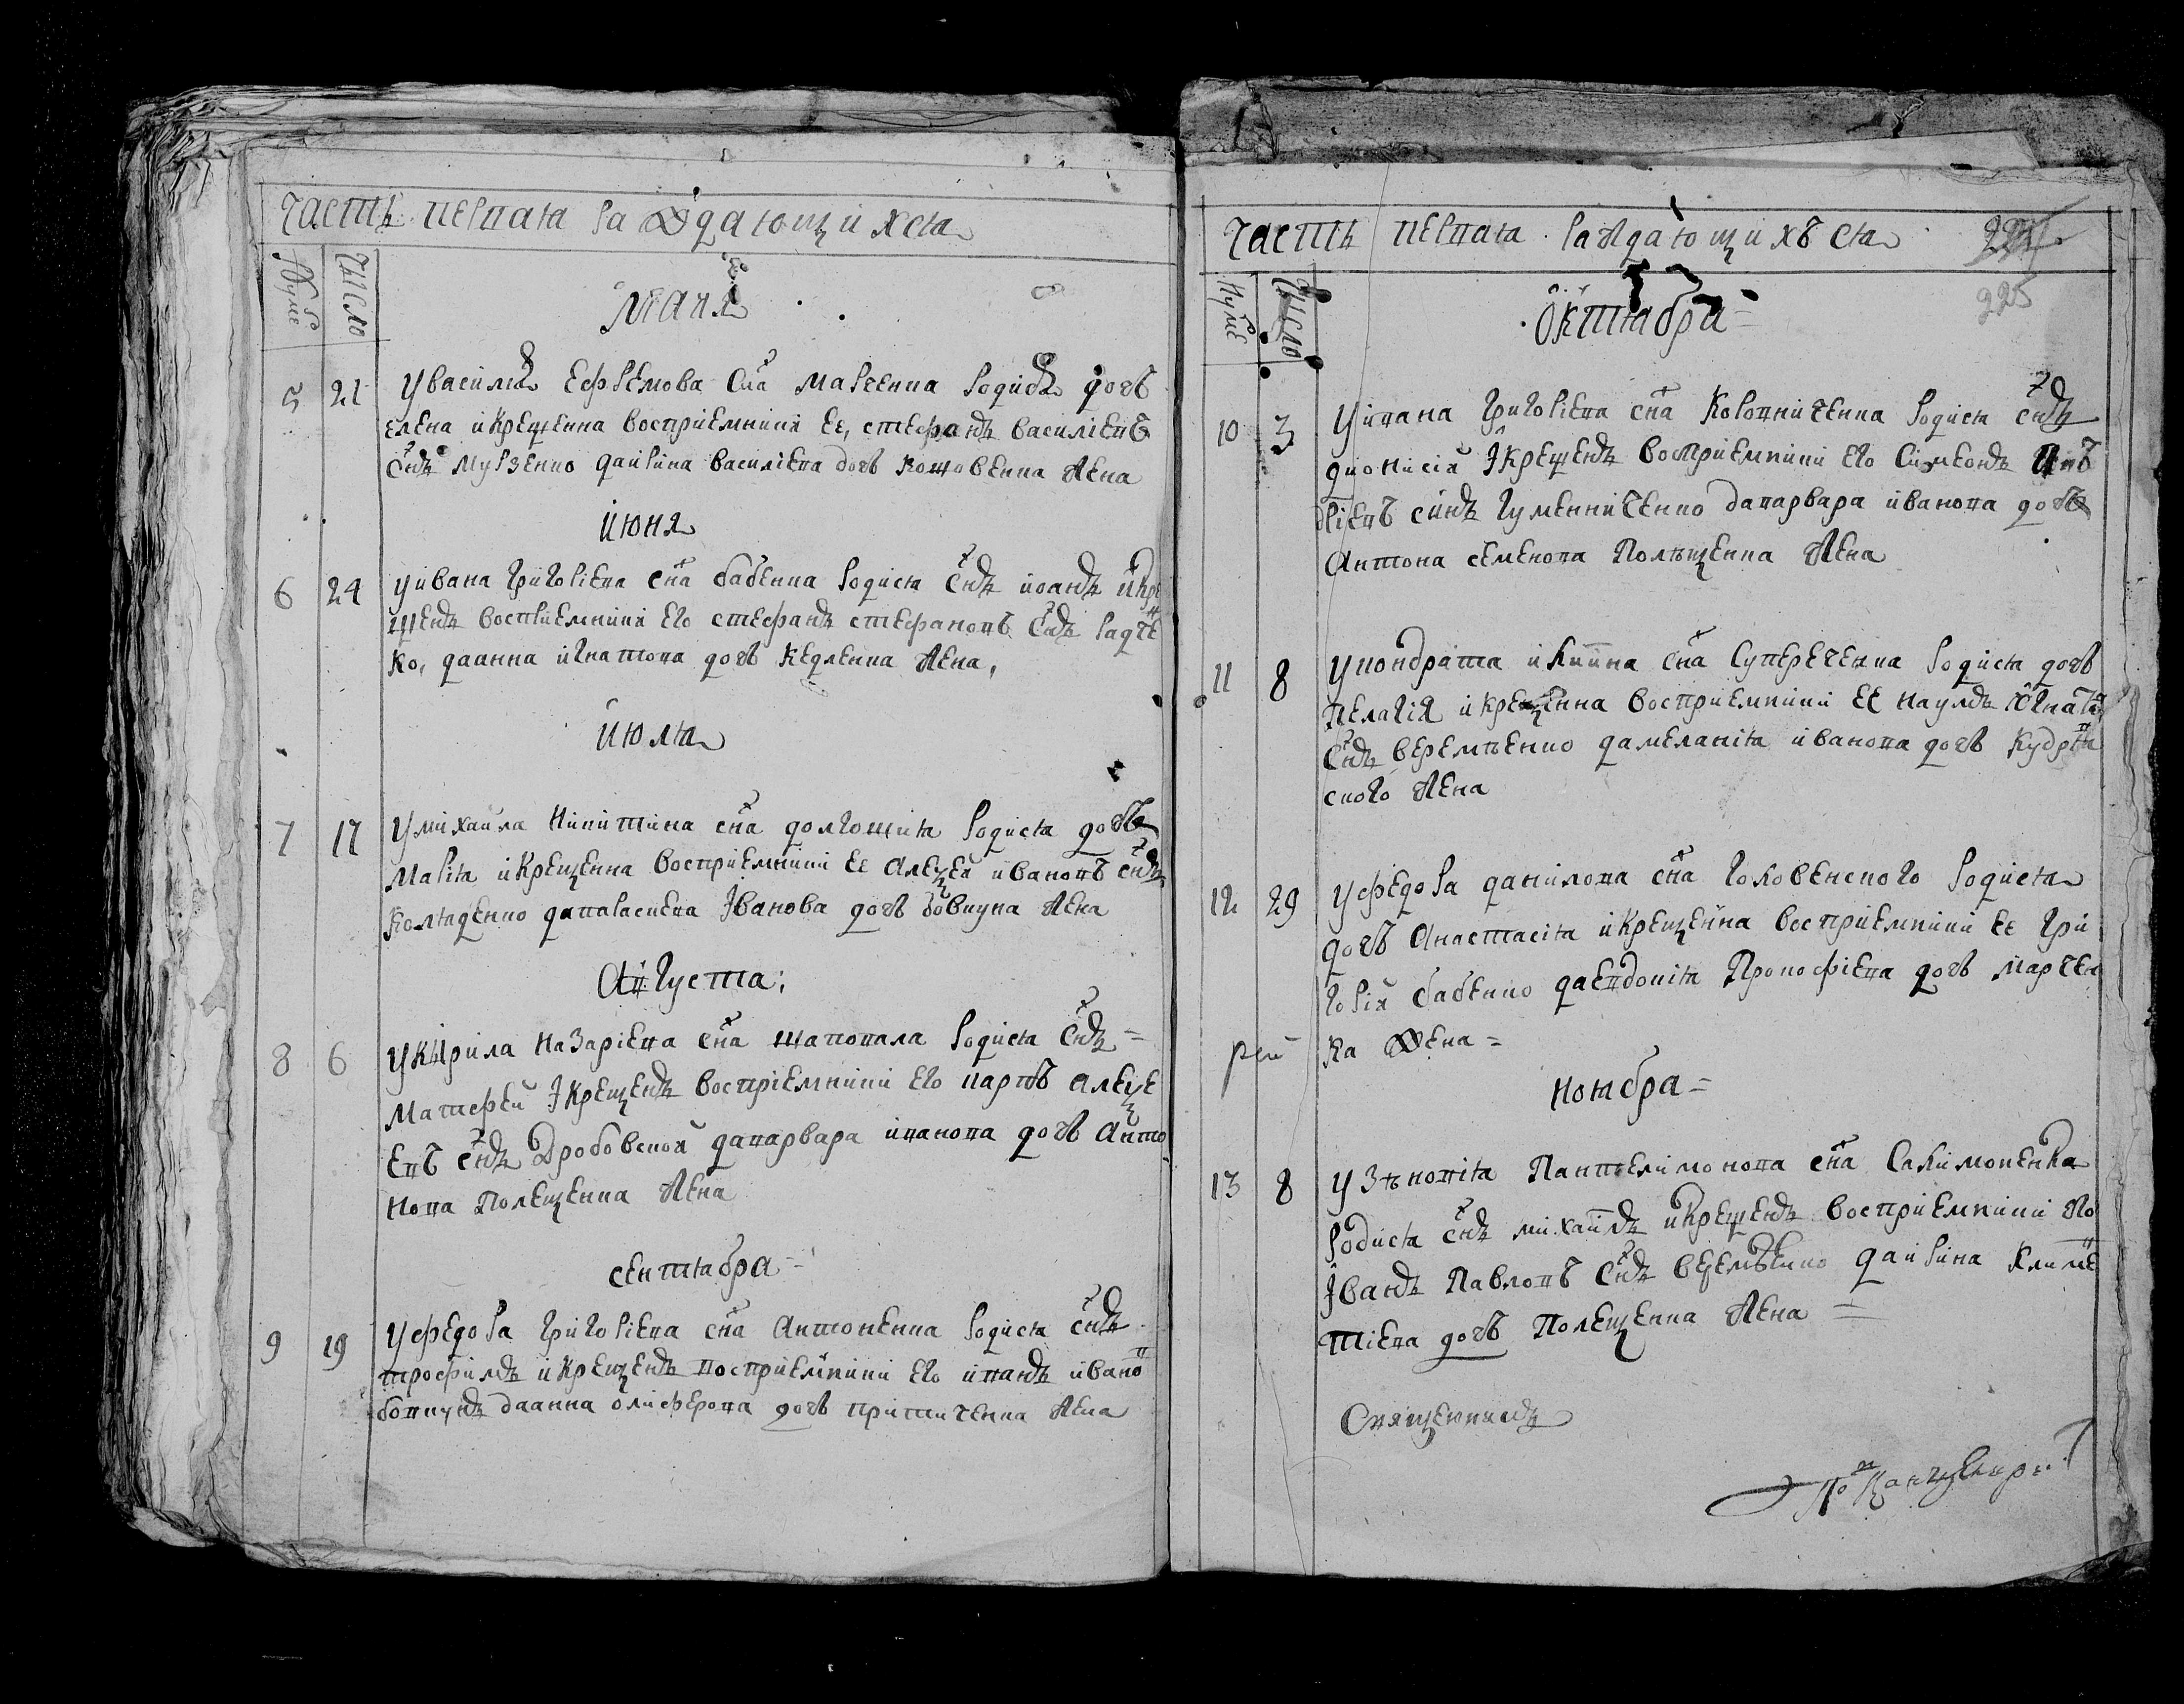 часть первая раждающихся
нуме число
маия
5 21 У василия Ефремова сна марченка родися дочь
елена и крещенна восприемники ее, стефанъ василіевъ
снъ мурзенко да ирина василіева дочь кошовенка жена
июня
6 24 У ивана григоріева сна бабенка родися снъ иоанъ и кре
щенъ восприемники его стефанъ стефановъ снъ радче
ко, да анна игнатова дочь кедленка жена,
июля
7 17 У михаила никитина сна долгошия родися дочь
марія и крещенна восприемники ее алеѯей ивановъ снъ
коляденко да параскева Іванова дочь бовкуна жена
августа;
8 6 У кирила назаріева сна шаповала родися снъ =
матфей І крещенъ восприемники его карпъ алеѯе
евъ снъ дробовской да варвара иванова дочь анто
нова полещенка жена
сентября =
9 19 У федора григоріева сна антоненка родися снъ
трофимъ и крещенъ восприемники его иванъ ивано
бовкунъ да анна олиферова дочь притиченка жена
часть первая раждающихъся
225
нуме число
октября =
10 3 У ивана григоріева сна коровниченка родися снъ
дионисій І крещенъ восприемники его симеонъ
дріевъ синъ гуменниченко да варвара иванова дочь
антона семенова полѣщенка жена
11 8 У кондрата сна суперечен\ка родися дочь
пелагія и крещенна восприемники ее наумъ игнатов
снъ веремѣенко да меланія иванова дочь кудряв
ского жена
12 29 У федора данилова сна головенского родися
дочь анастасія и крещенна восприемники ее гри
горій бабенко да евдокія прокофіева дочь марчен
ка жена =
ноября =
13 8 У зѣновія пантелимонова сна
родися снъ михаилъ и крещенъ восприемники его
Іванъ павловъ снъ веремѣенко да ирина климе
тіева дочь полещенка жена =
Священникъ